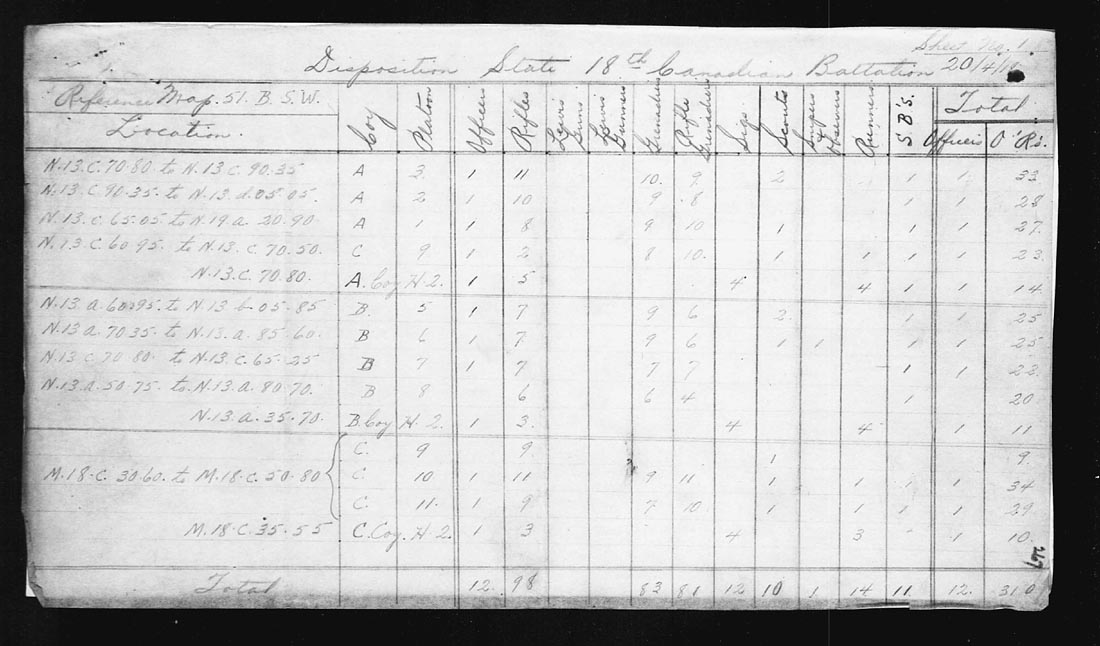 Sheet No. 1.
Disposition State 18th Canadian Battation 20/4/18
Reference Map. 51. B. S.W. Total
Location. Coy Platoon Officers Rifles Lewis Guns Lewis Gunners Grenadiers Rifle Grenadiers Sigs Scouts Snipers & Runners S. B's. Officers O'Rs.
N.13.C.70.80 to N.13.C.90.35 A 3. 1 11 10. 9. 2 1 1 33
N.13.C.90.35 to N.13.d.05.05. A 2 1 10 9 8 1 1 28
N.13.C.65.05 to N.19.a.20.90 A 1 1 8 9 10 1 1 1 27.
N.13.C.60.95. to N.13.C.70.50. C 9. 1 2 8 10. 1 1 1 1 23
N.13.C.70.80. A. Coy H.2. 1 5 4 4 1 1 14
N.13.a.60.95. to N.13.b.05.85 B. 5 1 7 9 6 2. 1 1 25
N.13.a.70.35 to N.13.a.85.60. B 6 1 7 9 6 1 1 1 1 25
N.13.C.70.80 to N.13.C.65.25 B 7 1 7 7 7 1 1 22.
N.13.a.50.75 to N.13.a.80.70. B 8 6 6 4 1 20
N.13.a.35.70. B. Coy H.2. 1 3. 4 4 1 11
C. 9 9. 1 9.
M.18.C.30.60. to M.18.C.50.80 C. 10 1 11 9 11 1 1 1 1 34
C. 11. 1 9 7 10 1 1 1 1 29
M.18.C.35.55 C. Coy. H.2. 1 3 4 3 1 10.
Total 12. 98 83 81 12 10 1 14 11 12. 310